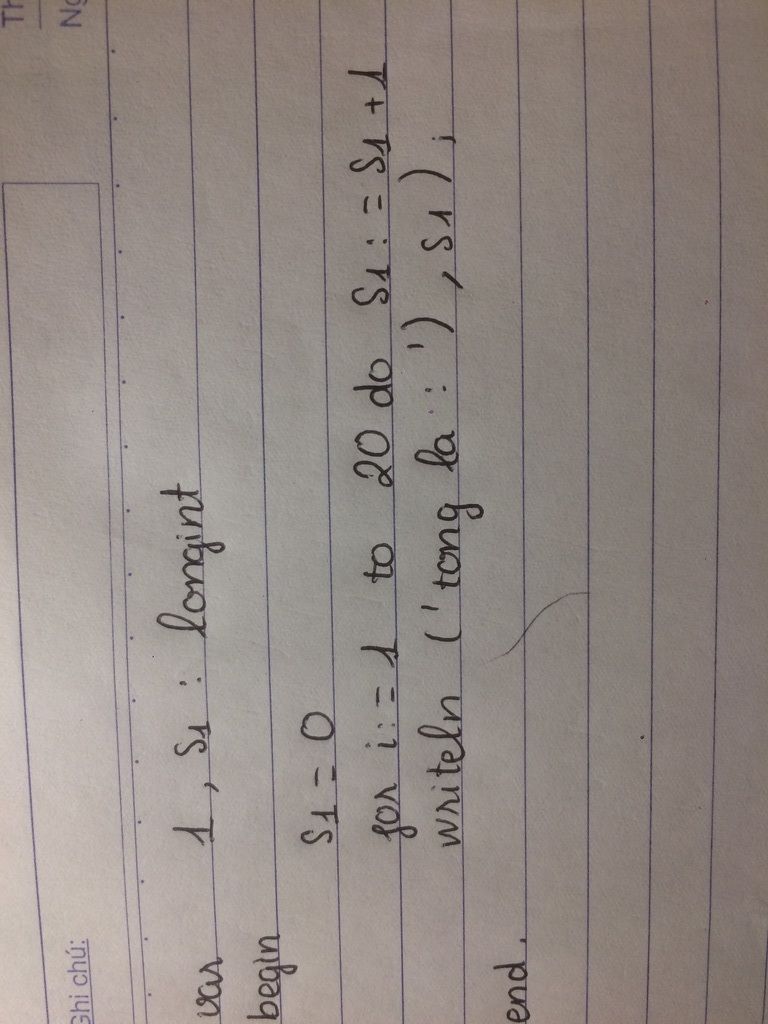 Th
Ng
Ghi chú:
var 1, S1 : longint
begin
S1 = 0
for i:=1 to 20 do S1:= S1+1
writeln ('tong la : '), S1);
end.